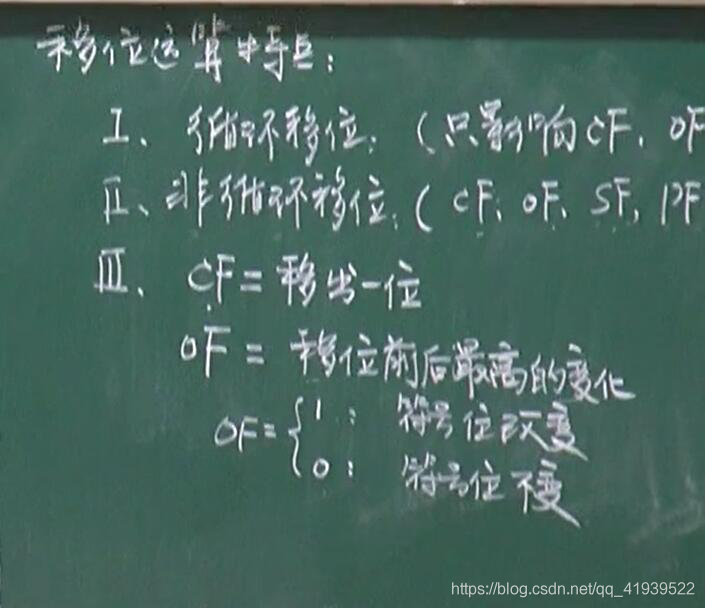 移位运算特点:
I、循环移位:(只影响CF、OF
II、非循环移位:(CF、OF、SF、PF
III、CF=移出一位
OF=移位前后最高的变化
OF={1:符号位改变
0:符号位不变
https://blog.csdn.net/qq_41939522